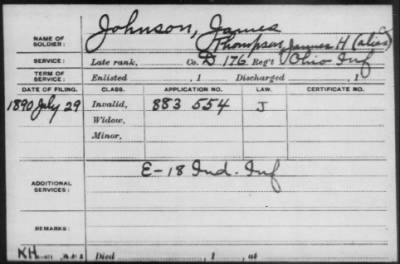 Johnson, James
NAME OF SOLDIER:
Thompson, James H (alias)
SERVICE: Late rank, Co. D 176 Reg't Ohio Inf
TERM OF SERVICE: Enlisted , 1 Discharged , 1
DATE OF FILING. CLASS. APPLICATION NO. LAW. CERTIFICATE NO.
1890 July 29 Invalid, 883 554 J
Widow,
Minor,
E-18 Ind. Inf
ADDITIONAL SERVICES:
REMARKS:
KH
Died , 1 , at